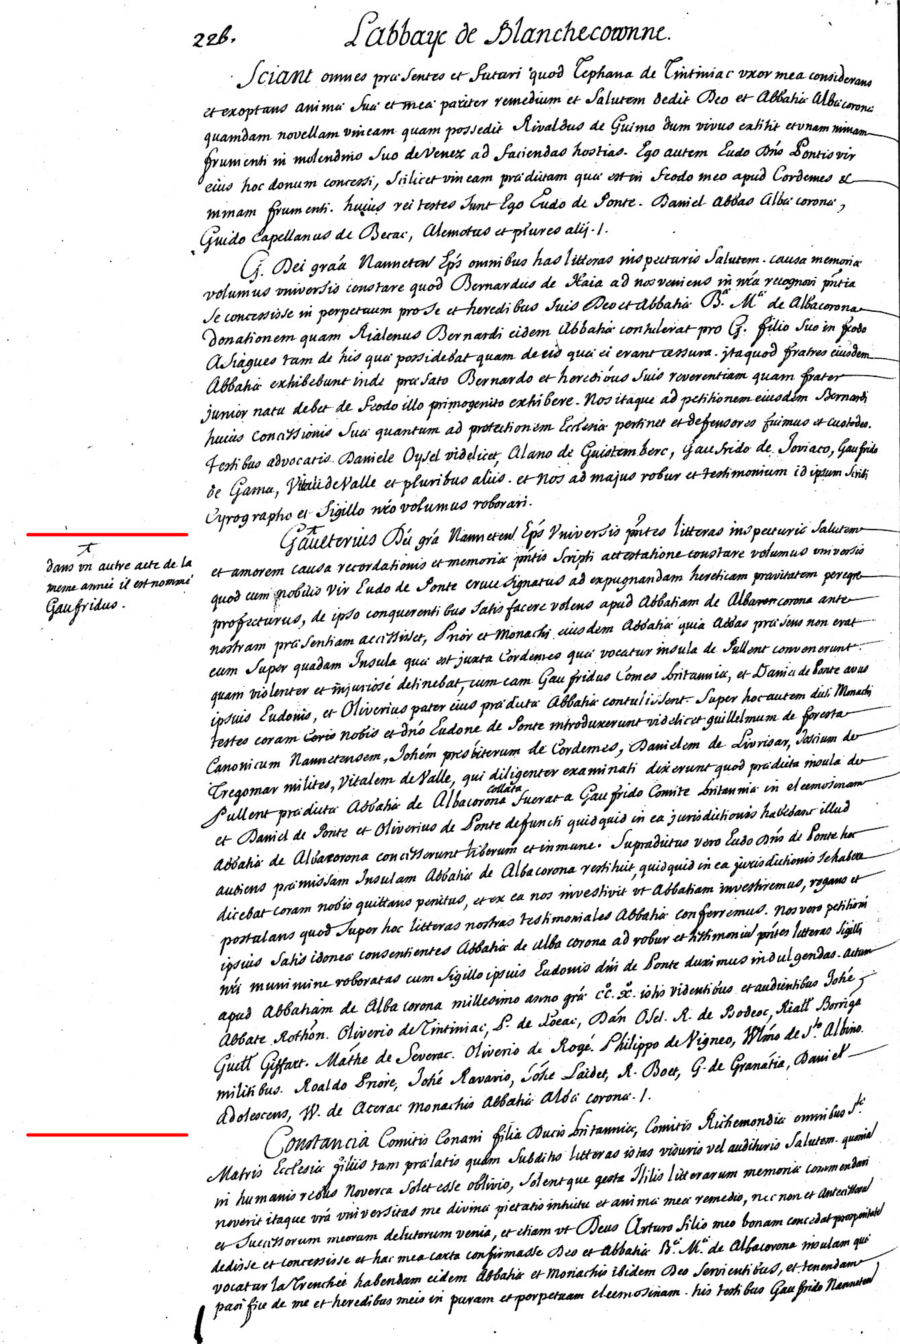 226. L'abbaye de Blanchecouronne.
Sciant omnes præsentes et futuri quod Tephana de Tintiniac uxor mea considerans
et exoptans animæ suæ et meæ pariter remedium et salutem dedit Deo et Abbatiæ Albæcoronæ
quamdam novellam vineam quam possedit Rivaldus de Guimo dum vivus extitit et unam minam
frumenti in molendino suo de Venez ad faciendas hostias. Ego autem Eudo Dñs Pontis vir
eius hoc donum concessi, scilicet vineam prædictam quæ est in feodo meo apud Cordemes &
minam frumenti. huius rei testes sunt Ego Eudo de Ponte. Daniel Abbas Albæ coronæ,
Guido Capellanus de Becac, Alemotus et plures alij. /.
G. Dei grãa Nanneten Ep̃s omnibus has litteras inspecturis Salutem. causa memoriæ
volumus universis constare quod Bernardus de Kaia ad nos veniens in nrã recognovit pñtia
se concessisse in perpetuum pro se et heredibus suis Deo et Abbatiæ Bæ. Mæ de Albacorona
donationem quam Rialenus Bernardi eidem Abbatiæ contulerat pro G. filio suo in feodo
Asiagues tam de his quæ possidebat quam de eis quæ ei erant cessura. itaquod fratres eiusdem
Abbatiæ exhibebunt inde præfato Bernardo et heredibus suis reverentiam quam frater
junior natu debet de feodo illo primogenito exhibere. Nos itaque ad petitionem eiusdem Bernardi
huius concessionis suæ quantum ad protectionem Ecclesiæ pertinet et defensores fuimus et custodes.
testibus advocatis. Daniele Oysel videlicet, Alano de Guistemberc, Gaufrido de Joviaco, Gaufrido
de Gama, Vitali de Valle et pluribus aliis. et Nos ad majus robur et testimonium id ipsum scripti
Cyrographo et Sigillo nrõ volumus roborari.
Gaulterius Dei grã Nanneten. Ep̃s Universis pñtes litteras inspecturis Salutem
et amorem causa recordationis et memoriæ pñtis Scripti attestatione constare volumus universis
quod cum nobilis vir Eudo de Ponte cruce signatus ad expugnandam hereticam pravitatem peregre
profecturus, de ipso conquerentibus satis facere volens apud Abbatiam de Albacorona ante
nostram præsentiam accessisset, Prior et Monachi eiusdem Abbatiæ quia Abbas præsens non erat
eum super quadam Insula quæ est juxta Cordemes quæ vocatur insula de Pullent convenerunt.
quam violenter et injuriosé detinebat, cum eam Gaufridus Comes britanniæ, et Daniel de Ponte avus
ipsius Eudonis, et Oliverius pater eius prædictæ Abbatiæ contulissent. Super hoc autem dicti Monachi
testes coram nobis et dño Eudone de Ponte introduxerunt videlicet guillelmum de foresta
Canonicum Nannetensem, Johem presbiterum de Cordemes, Danielem de Livrisar, Joscium de
Tregomar milites, Vitalem de Valle, qui diligenter examinati dixerunt quod prædicta insula de
Pullent prædictæ Abbatiæ de Albacorona collata fuerat a Gaufrido Comite britanniæ in eleemosinam
et Daniel de Ponte et Oliverius de Ponte defuncti quidquid in ea jurisdictionis habebant illud
Abbatiæ de Albacorona concesserunt liberum et inmune. Supradictus vero Eudo Dñs de Ponte hæc
audiens præmissam Insulam Abbatiæ de Albacorona restituit, quidquid in ea jurisdictionis se habere
dicebat coram nobis quittans penitus, et ex ea nos investivit ut Abbatiam investiremus, rogans et
postulans quod super hoc litteras nostras testimoniales Abbatiæ conferremus. Nos vero petitioni
ipsius satis idonea consentientes Abbatiæ de Alba corona ad robur et testimonium pñtes litteras sigilli
nrĩ munimine roboratas cum Sigillo ipsius Eudonis dñi de Ponte duximus indulgendas. Actum
apud Abbatiam de Alba corona millesimo anno grã cc. x. istis videntibus et audientibus Johẽ
Abbate Rothon. Oliverio de Tintiniac, P. de Loeac, Dan Osel. R. de Bodeoc, Riall Borriga
Guill Giffart. Mathe de Severac. Oliverio de Rogé. Philippo de Vigneo, Wlmo de Sto Albino.
militibus. Roaldo Priore, Johẽ Ravario, Johẽ Laidet, R. Boet, G. de Granatia, Daniel
Adolescens, W. de Acerac monachis Abbatiæ Albæ coronæ. /.
dans un autre acte de la
meme année il est nommé
Gaufridus.
Constancia Comitis Conani filia Ducis britanniæ, Comitis Richemondiæ omnibus Stæ.
Matris Ecclesiæ filiis tam prælatis quam Subditis litteras istas visuris vel audituris Salutem. quoniã
in humanis rebus Noverca solet esse oblivio, solentque gesta stili litterarum memoriæ commendari
noverit itaque vrã universitas me divinæ pietatis intuitu et animæ meæ remedio, nec non et Antecessorũ
et successorum meorum delictorum venia, et etiam ut Deus Arturo filio meo bonam concedat prosperitatẽ
dedisse et concessisse et hac mea carta confirmasse Deo et Abbatiæ Bæ. Mæ. de Albacorona insulam quæ
vocatur la Trenchée habendam eidem Abbatiæ et Monachis ibidem Deo servientibus, et tenendam
pacifice de me et heredibus meis in puram et perpetuam eleemosinam. his testibus Gaufrido Nanneten